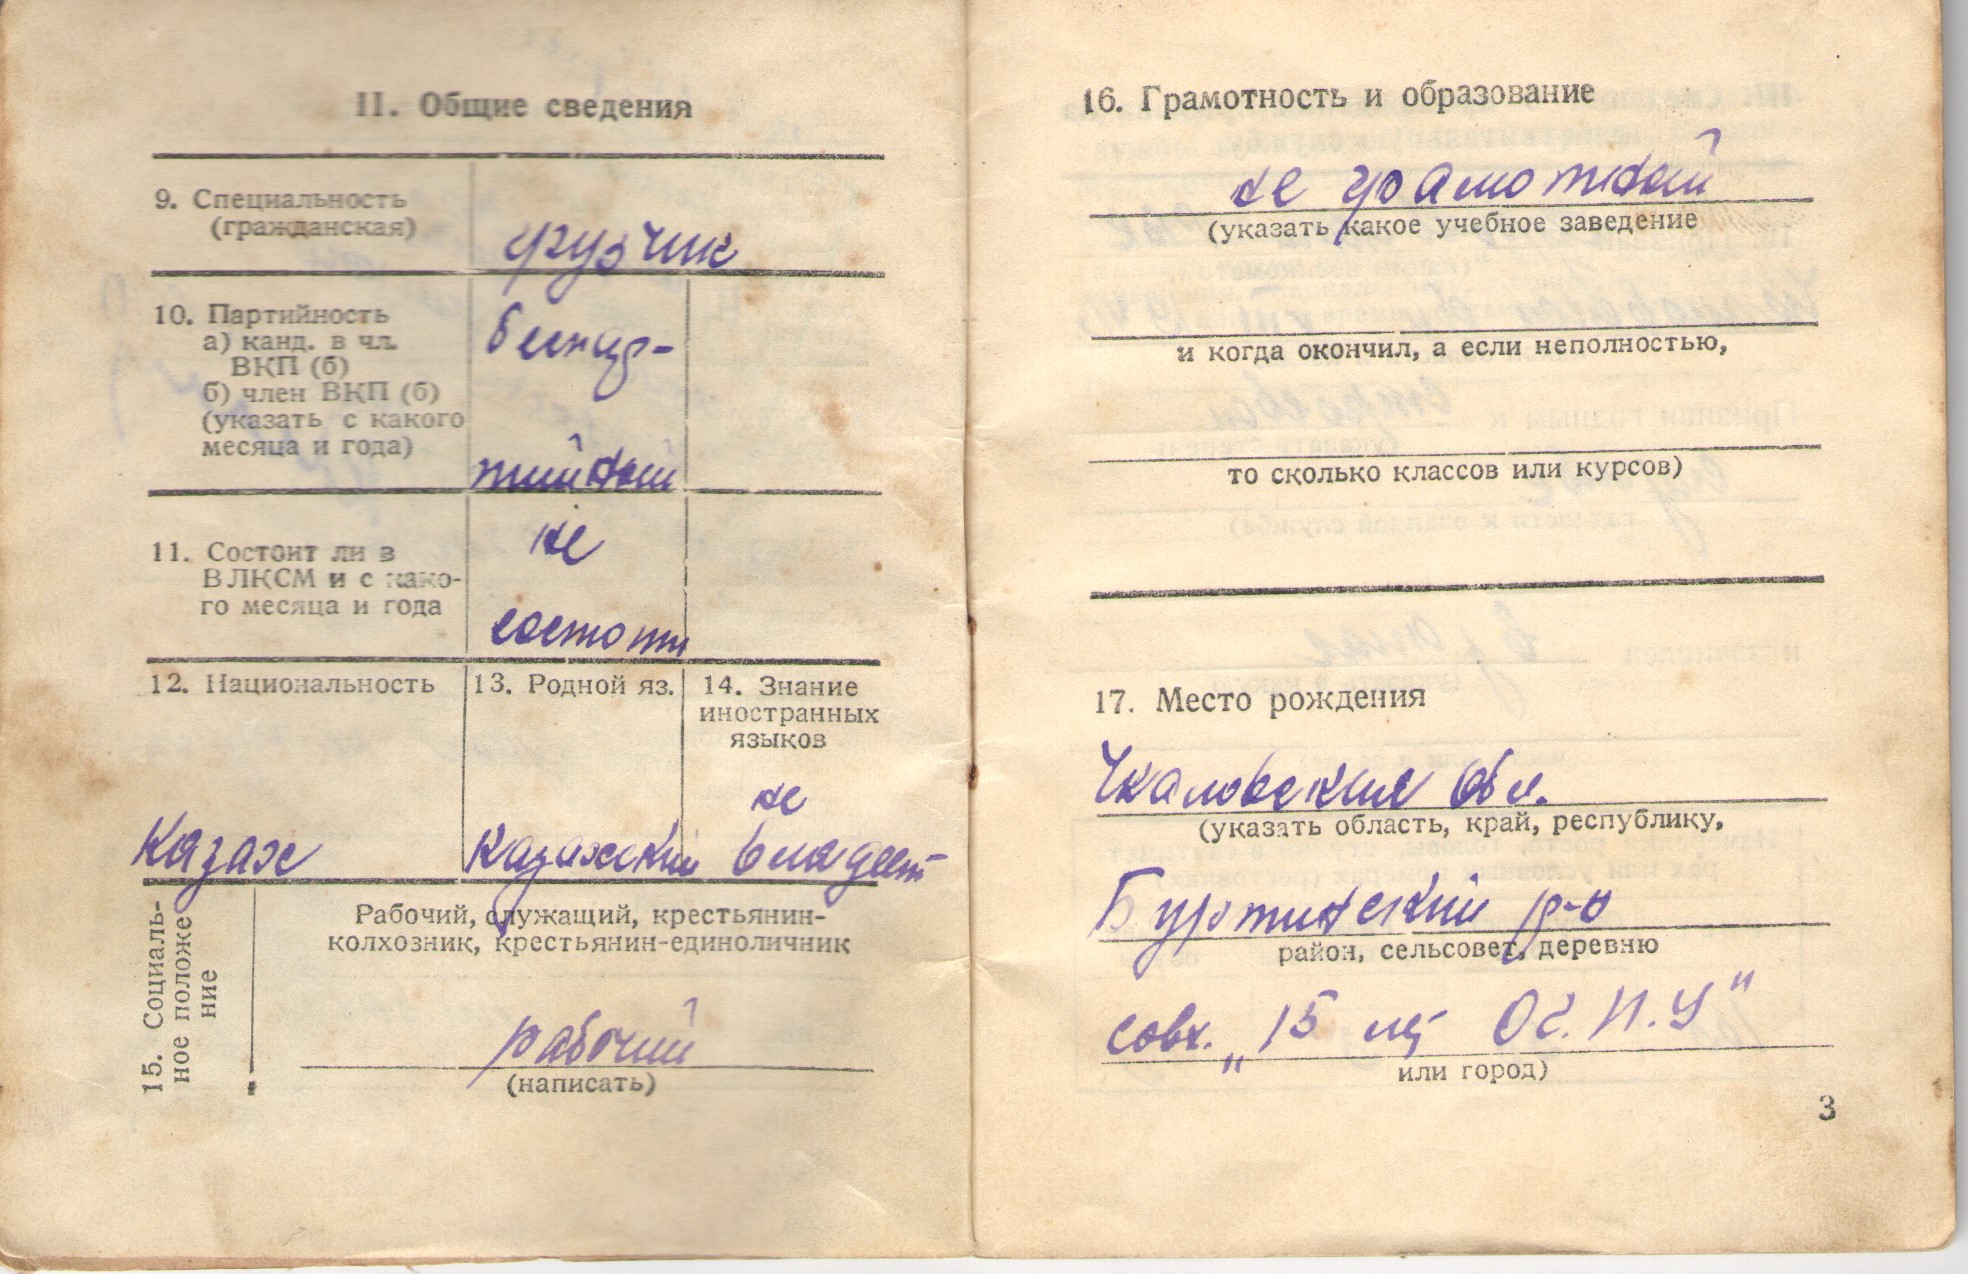 II. Общие сведения
9. Специальность
(гражданская)
грузчик
10. Партийность
а) канд. в чл.
ВКП (б)
б) член ВКП (б)
(указать с какого
месяца и года)
беспар-
тийный
11. Состоит ли в
ВЛКСМ и с како-
го месяца и года
не
состоит
12. Национальность
казах
13. Родной яз.
казахский
14. Знание
иностранных
языков
не
владеет
15. Социаль-
ное положе-
ние
Рабочий, служащий, крестьянин-
колхозник, крестьянин-единоличник
рабочий
(написать)
16. Грамотность и образование
не грамотный
(указать какое учебное заведение
и когда окончил, а если неполностью,
то сколько классов или курсов)
17. Место рождения
Чкаловская обл.
(указать область, край, республику,
Буртинский р-н
район, сельсовет, деревню
совх. „15 лет О.Г.П.У"
или город)
3